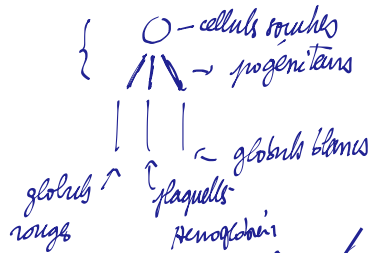 celluls souches
pogéniteurs
globuls blancs
globuls
rouges
plaquettes